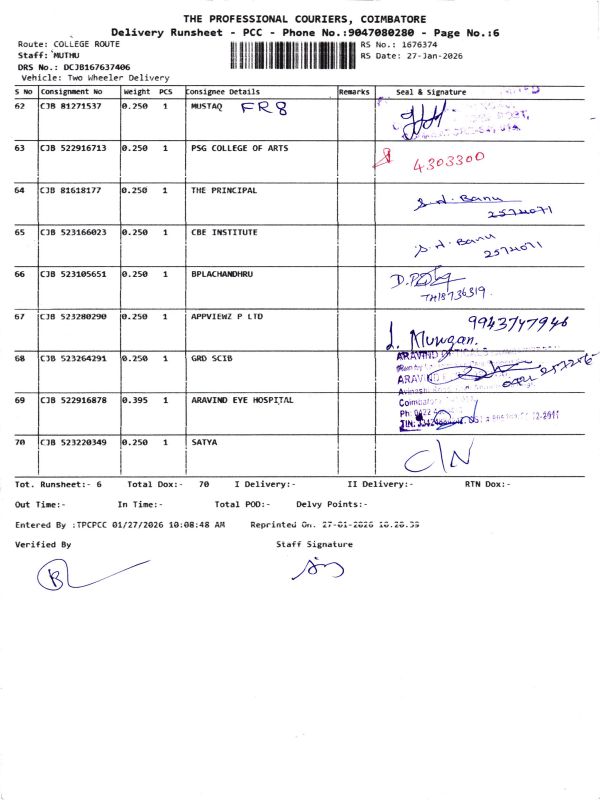 THE PROFESSIONAL COURIERS, COIMBATORE
Delivery Runsheet - PCC - Phone No.:9047080280 - Page No.:6
Route: COLLEGE ROUTE
RS No.: 1676374
Staff: MUTHU
RS Date: 27-Jan-2026
DRS No.: DCJB167637406
Vehicle: Two Wheeler Delivery
S No Consignment No Weight PCS Consignee Details Remarks Seal & Signature
62 CJB 81271537 0.250 1 MUSTAQ FR8
63 CJB 522916713 0.250 1 PSG COLLEGE OF ARTS 4303300
64 CJB 81618177 0.250 1 THE PRINCIPAL S.N. Banu
2574071
65 CJB 523166023 0.250 1 CBE INSTITUTE S.N. Banu
2574071
66 CJB 523105651 0.250 1 BPLACHANDHRU
67 CJB 523280290 0.250 1 APPVIEWZ P LTD 9943747946
J. Murugan.
68 CJB 523264291 0.250 1 GRD SCIB
ARAVIND
69 CJB 522916878 0.395 1 ARAVIND EYE HOSPITAL
70 CJB 523220349 0.250 1 SATYA C/N
Tot. Runsheet:- 6 Total Dox:- 70 I Delivery:- II Delivery:- RTN Dox:-
Out Time:- In Time:- Total POD:- Delvy Points:-
Entered By :TPCPCC 01/27/2026 10:08:48 AM Reprinted On.
Verified By Staff Signature